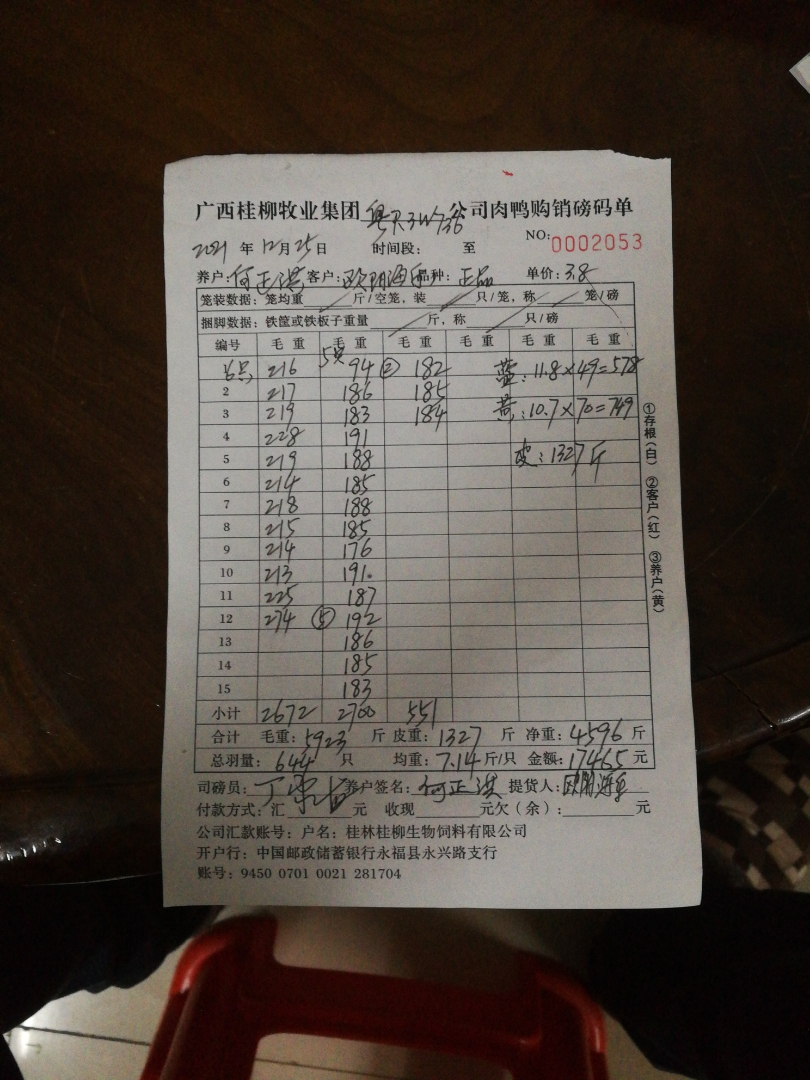 广西桂柳牧业集团 粤R3W736 公司肉鸭购销磅码单
2021 年 12 月 25 日 时间段: 至 NO:0002053
养户:何正洪 客户:欧阳海 品种:正品 单价:3.8
笼装数据:笼均重 斤/空笼,装 只/笼,称 笼/磅
捆脚数据:铁筐或铁板子重量 斤,称 只/磅
编号 毛重 毛重 毛重 毛重 毛重 毛重
6只 216 5只 94 ② 182 蓝:11.8×49=578
2 217 186 185
3 219 183 184 黄:10.7×70=749
4 228 191
5 219 188 皮:1327斤
6 214 185
7 218 188
8 215 185
9 214 176
10 213 191.
11 225 187
12 274 ⑤ 192
13 186
14 185
15 183
小计 2672 2700 551
合计 毛重:5923 斤 皮重:1327 斤 净重:4596 斤
总羽量:644 只 均重:7.14 斤/只 金额:17465 元
司磅员: 养户签名:何正洪 提货人:欧阳海
付款方式:汇 元 收现 元欠(余): 元
公司汇款账号:户名:桂林桂柳生物饲料有限公司
开户行:中国邮政储蓄银行永福县永兴路支行
账号:9450 0701 0021 281704
①存根(白) ②客户(红) ③养户(黄)